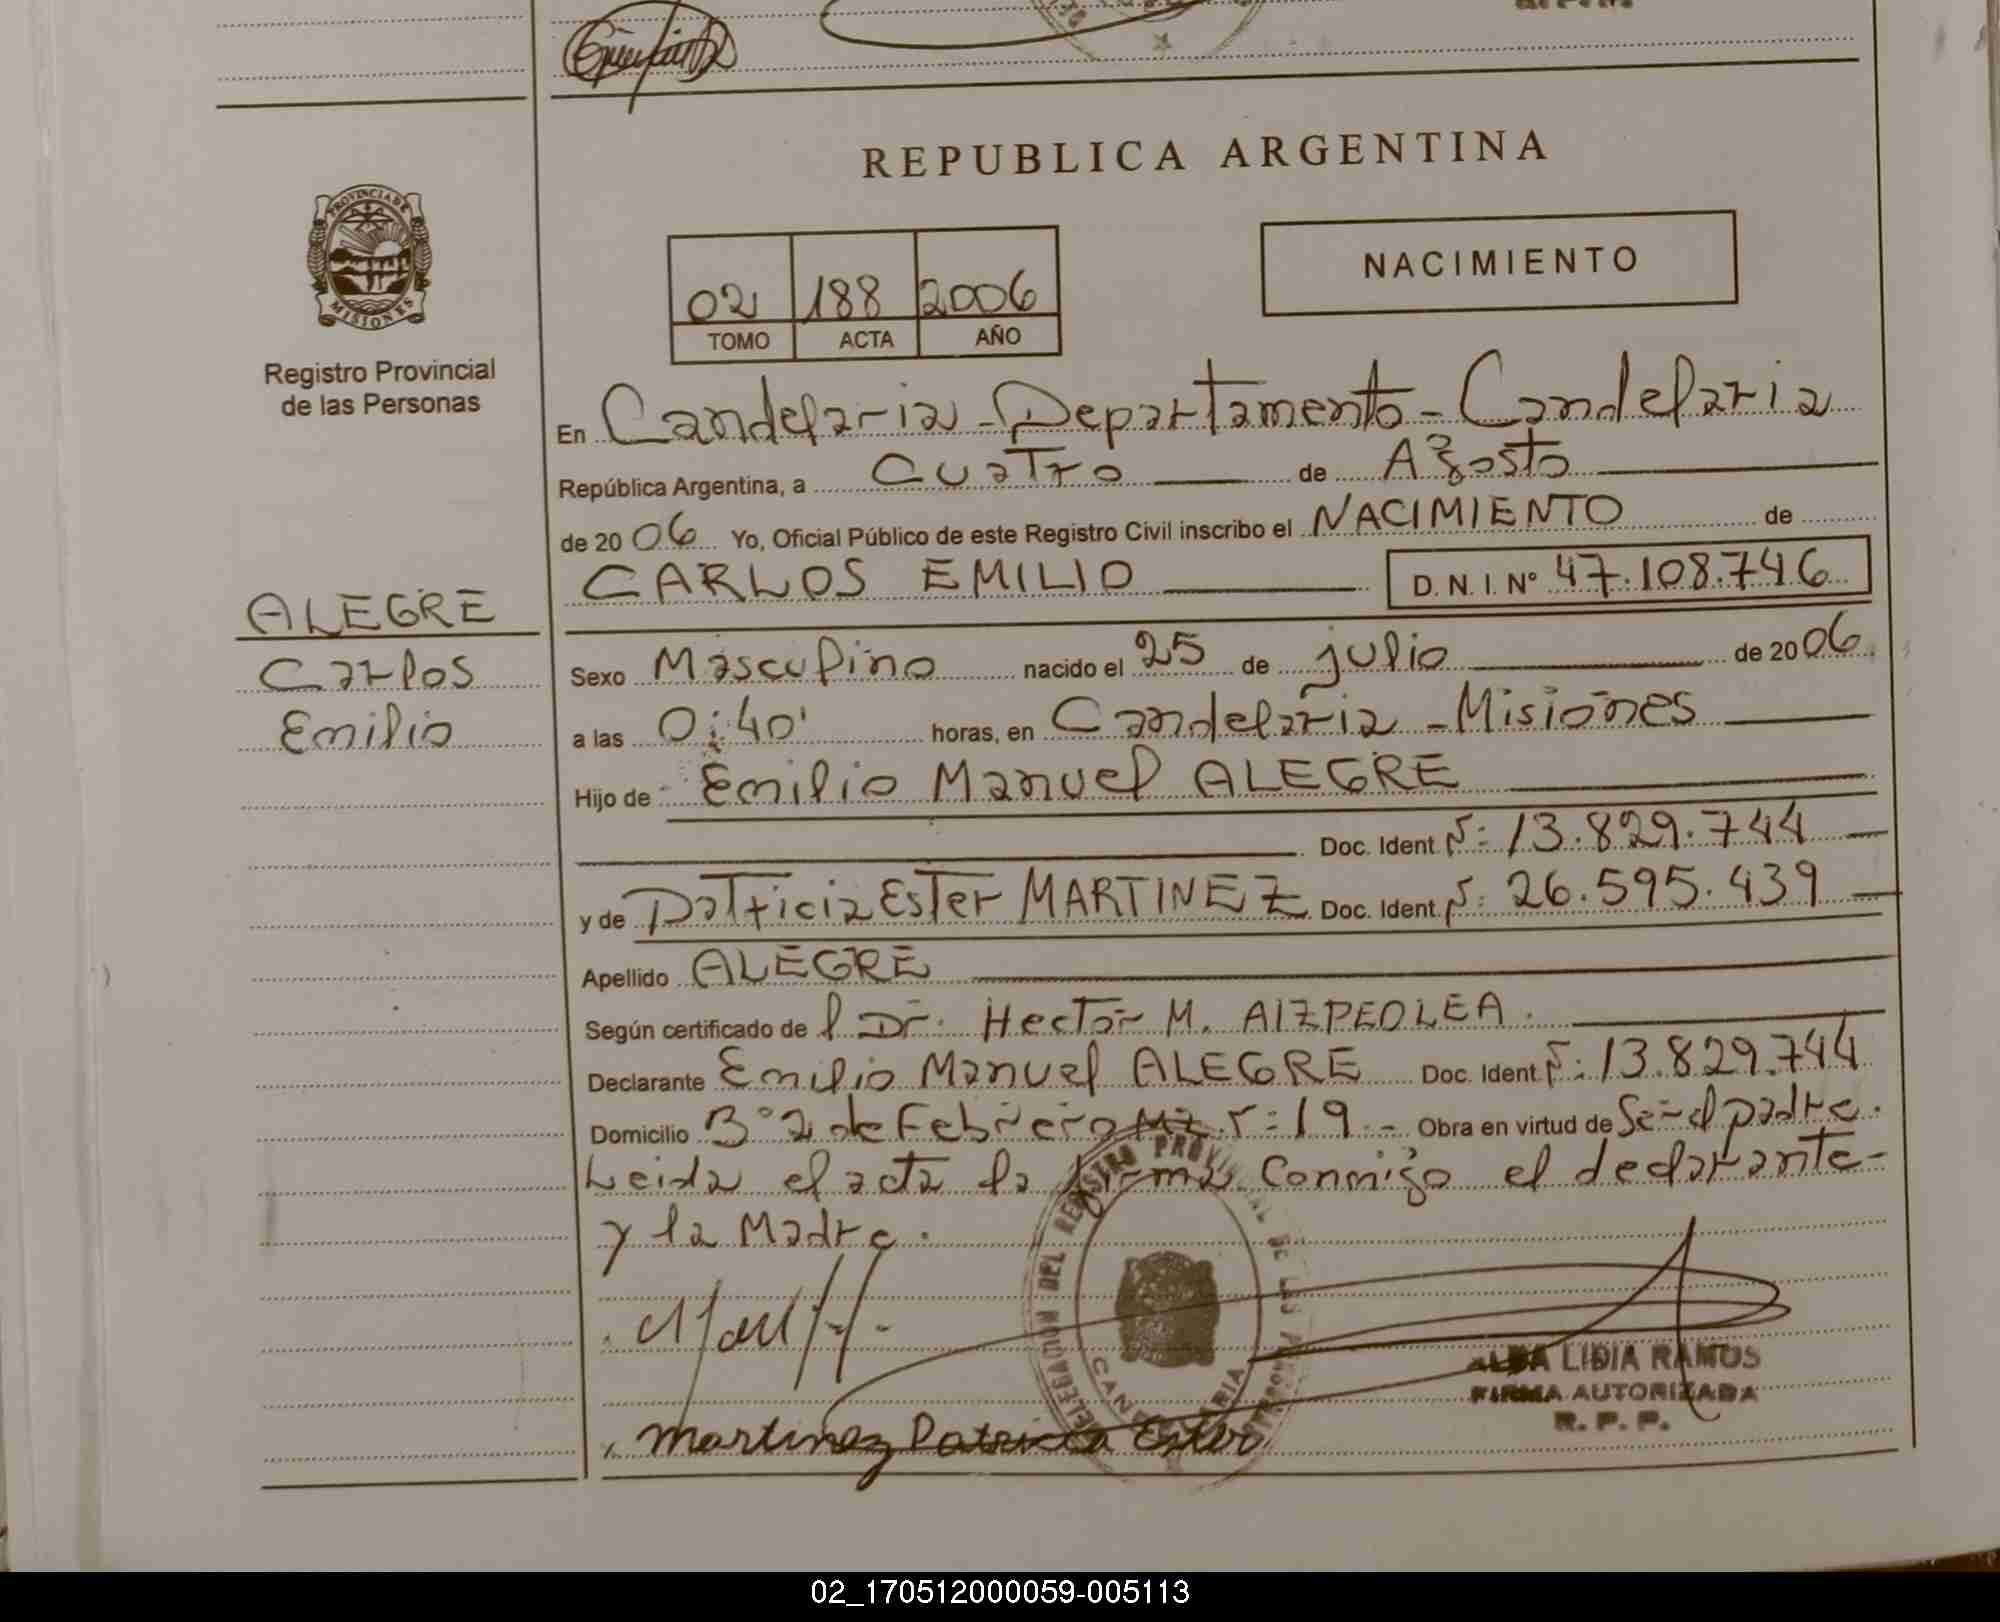 REPUBLICA ARGENTINA
PROVINCIA DE
MISIONES
Registro Provincial
de las Personas
02 188 2006
TOMO ACTA AÑO
NACIMIENTO
En Candelaria - Departamento - Candelaria
República Argentina, a Cuatro de Agosto
de 2006 Yo, Oficial Público de este Registro Civil inscribo el NACIMIENTO de
CARLOS EMILIO D. N. I. Nº 47.108.746
ALEGRE
Carlos
Emilio
Sexo Masculino nacido el 25 de julio de 2006
a las 0:40' horas, en Candelaria - Misiones
Hijo de Emilio Manuel ALEGRE
Doc. Ident. Nº: 13.829.744
y de Patricia Ester MARTINEZ Doc. Ident. Nº: 26.595.439
Apellido ALEGRE
Según certificado del Dr. Hector M. AIZPEOLEA.
Declarante Emilio Manuel ALEGRE Doc. Ident. Nº: 13.829.744
Domicilio Bº 2 de Febrero Mz. Nº: 19 - Obra en virtud de Ser el padre.
Leida el acta la firma Conmigo el declarante -
y la Madre.
DELEGACION DEL REGISTRO PROVINCIAL DE LAS
CANDELARIA
ALBA LIDIA RAMOS
FIRMA AUTORIZADA
R. P. P.
Martinez Patricia Ester
02_170512000059-005113